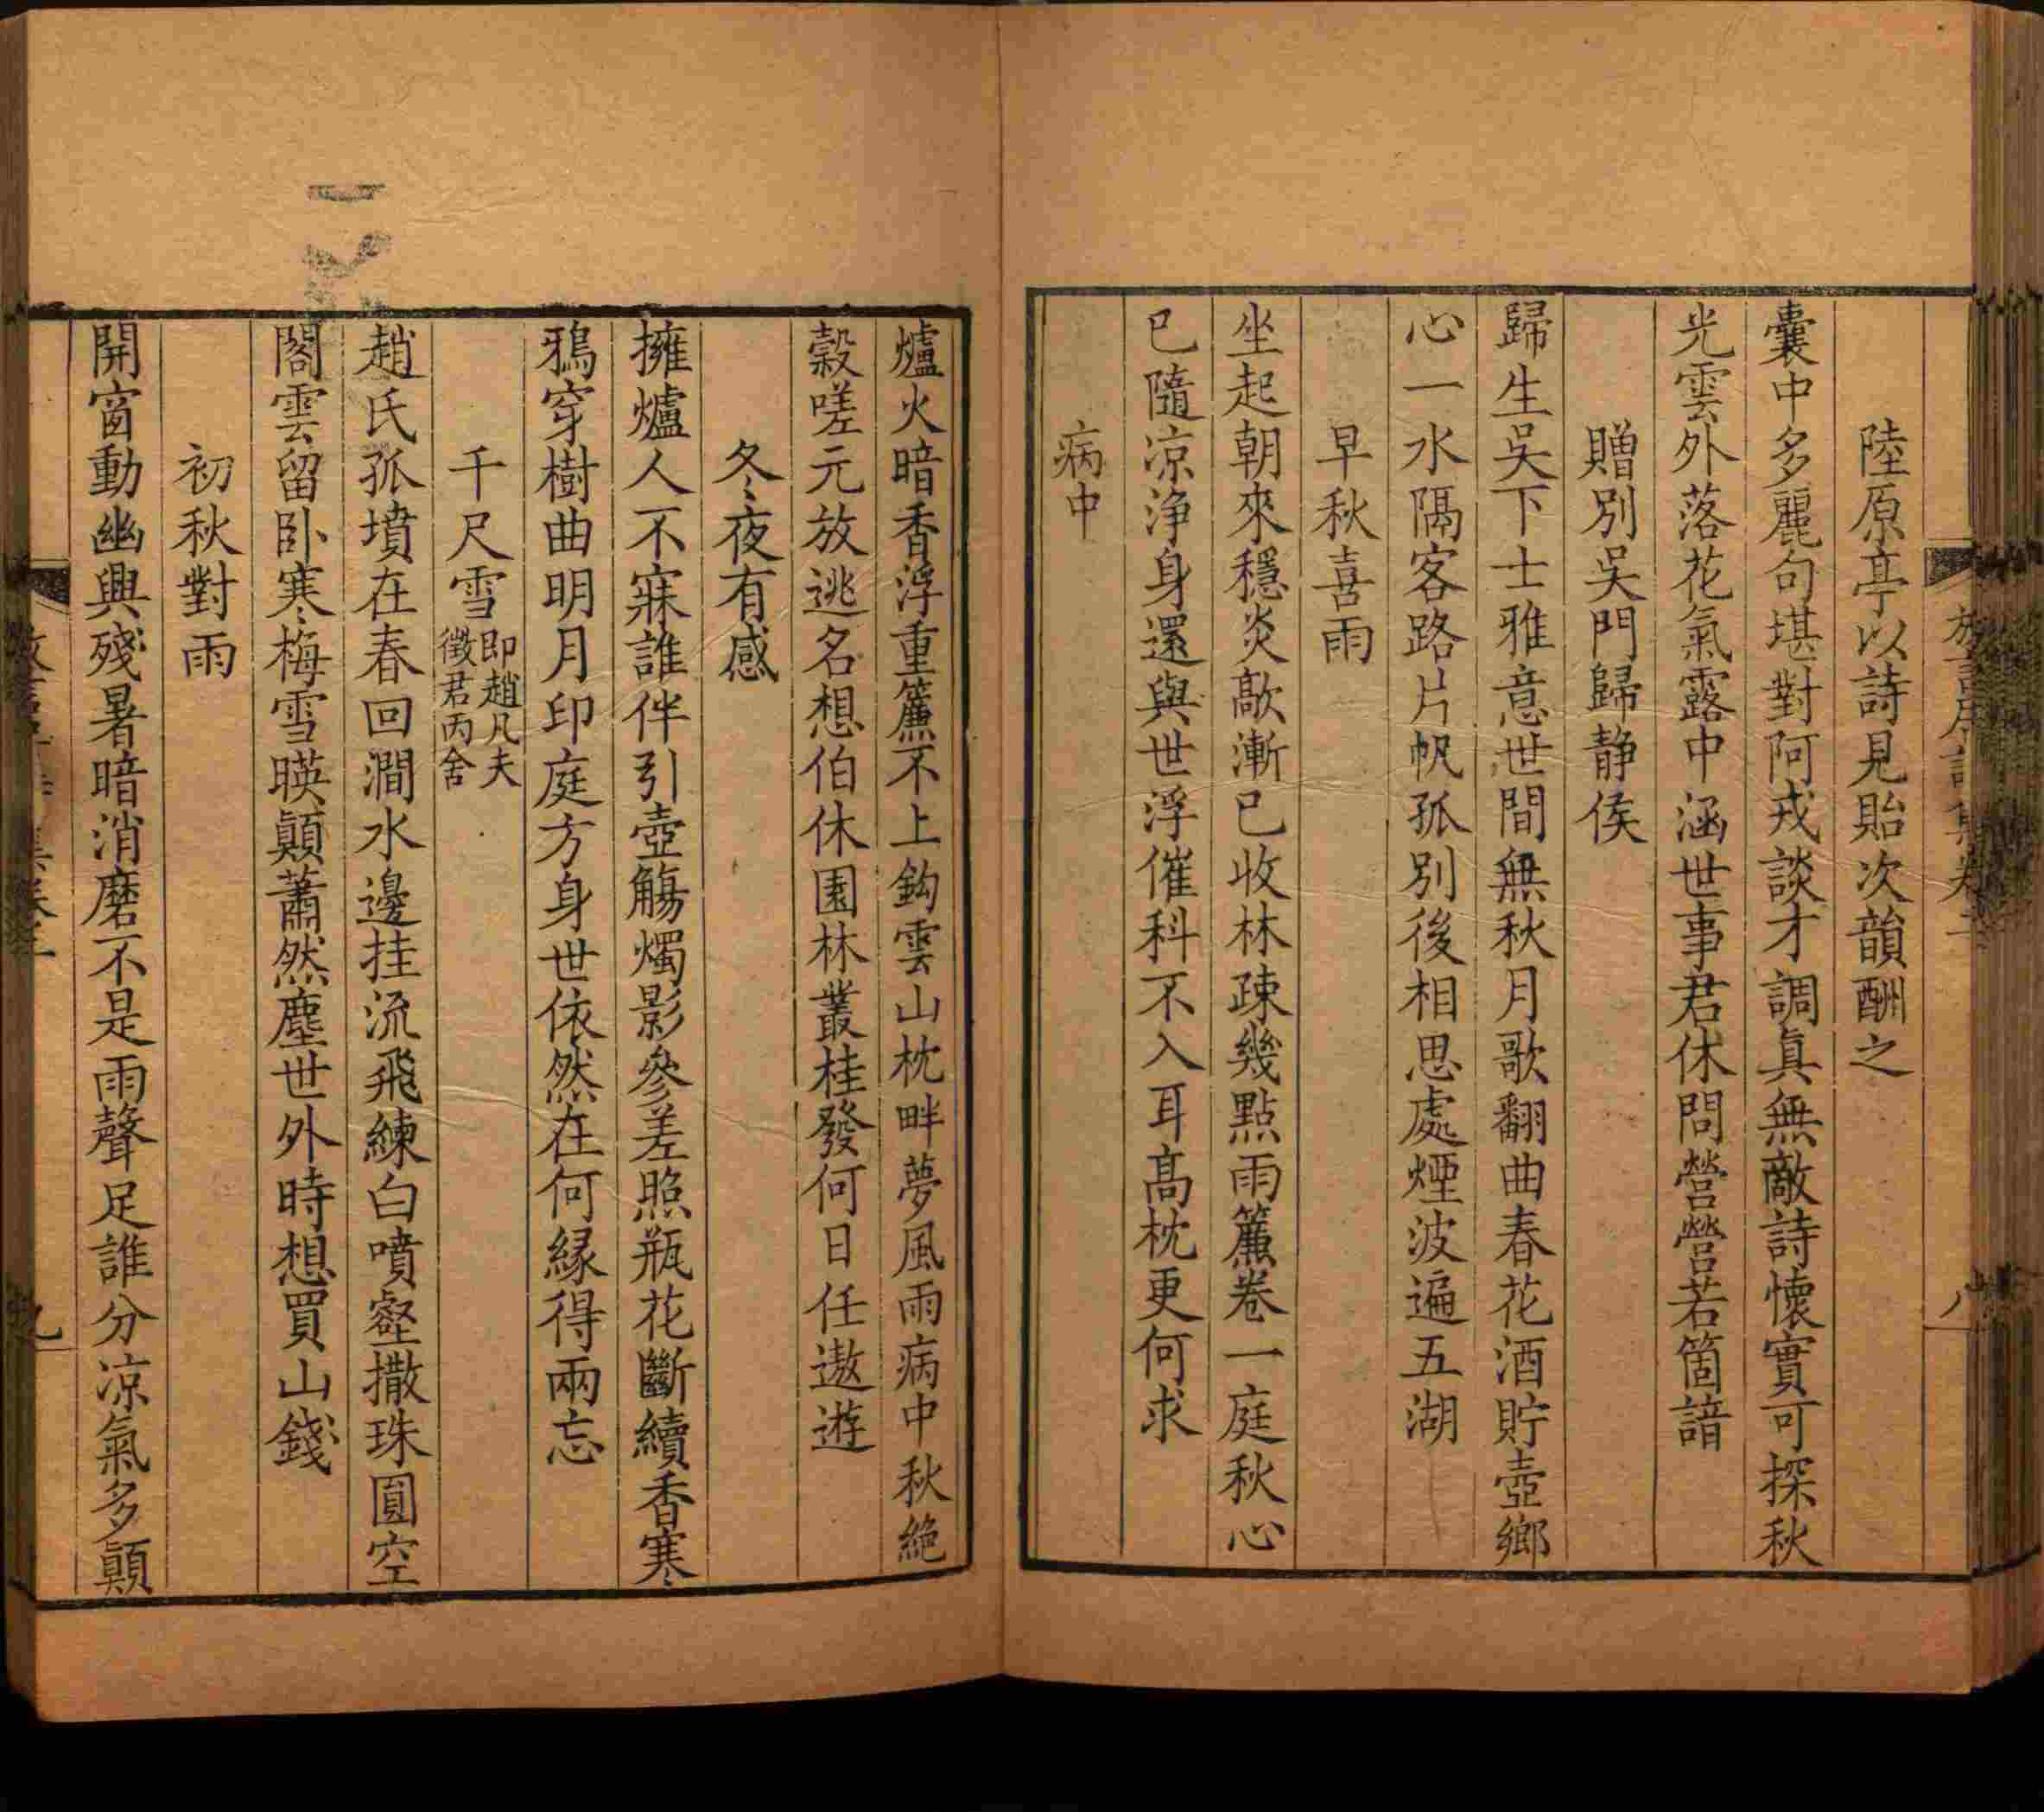 陸原亭以詩見貽次韻酬之
囊中多麗句堪對阿戎談才調真無敵詩懷實可探秋
光雲外落花氣露中涵世事君休問營營若箇諳
贈別吳門歸静侯
歸生吳下士雅意世間無秋月歌翻曲春花酒貯壺鄉
心一水隔客路片帆孤別後相思處煙波遍五湖
早秋喜雨
坐起朝來穩炎歊漸已收林疎幾點雨簾卷一庭秋心
已隨凉浄身還與世浮催科不入耳高枕更何求
病中
爐火暗香浮重簾不上鈎雲山枕畔夢風雨病中秋絶
穀嗟元放逃名想伯休園林叢桂發何日任遨遊
冬夜有感
擁爐人不寐誰伴引壺觴燭影參差照瓶花斷續香寒
鴉穿樹曲明月印庭方身世依然在何緣得兩忘
千尺雪即趙凡夫徵君丙舍
趙氏孤墳在春回澗水邊挂流飛練白噴壑撒珠圓空
閣雲留卧寒梅雪暎顛蕭然塵世外時想買山錢
初秋對雨
開窗動幽興殘暑暗消磨不是雨聲足誰分凉氣多顛
八
九